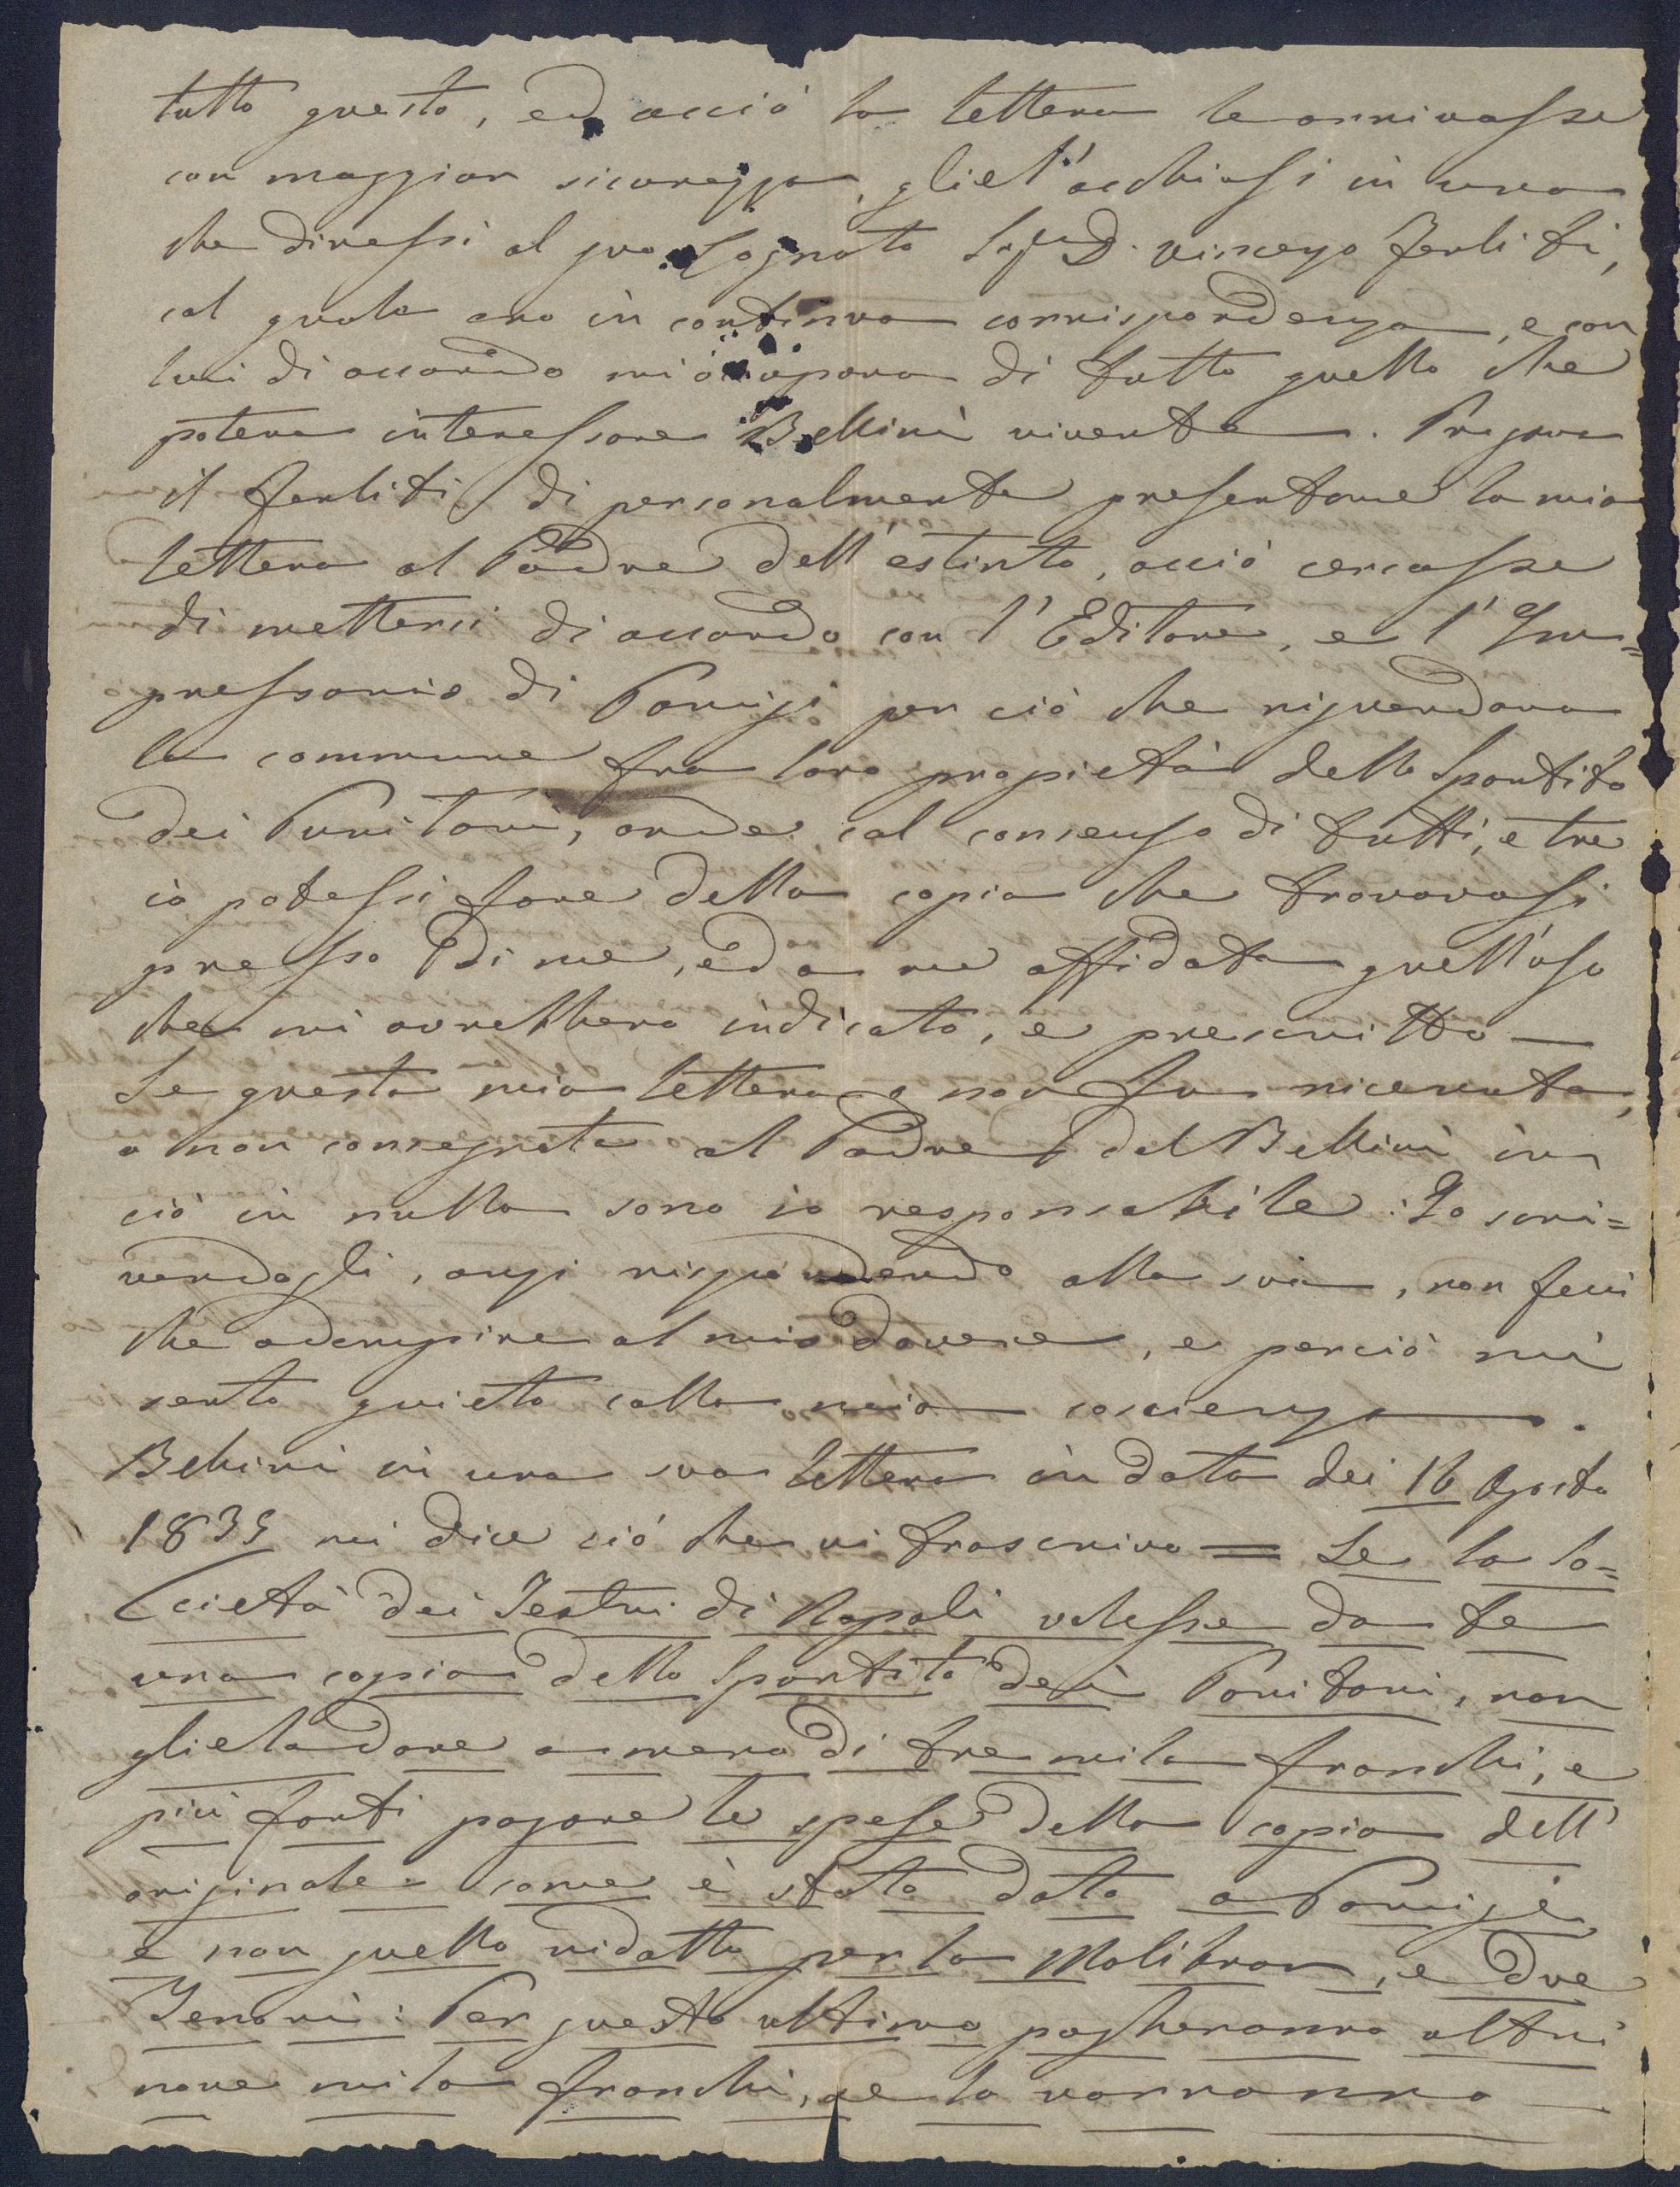 tutto questo, ed acciò la lettera le arrivasse
con maggior sicurezza, gliel'acchiusi in una
che diressi al suo Cognato Sigr D. Vincenzo Ferliti,
col quale ero in continua corrispondenza, e con
lui di accordo mi occupava di tutto quello che
poteva interessare Bellini vivente. Pregava
il Ferliti di personalmente presentare la mia
lettera al Padre dell'estinto, acciò cercasse
di mettersi di accordo con l'Editore, e l'Im=
pressario di Parigi per ciò che riguardava
la commune fra loro propietà dello Spartito
dei Puritani, onde col consenso di tutti, e tre
io potessi fare della copia che trovavasi
presso di me, ed a me affidata quell'uso
che mi avrebbero indicato, e prescritto —
Se questa mia lettera o non fu ricevuta,
o non consegnata al Padre del Bellini in
ciò in nulla sono io responsabile: Io scri=
vendogli, anzi rispondendo alla sua, non feci
che adempire al mio dovere, e perciò mi
sento quieto colla mia coscienza.
Bellini in una sua lettera in data dei 16 Agosto
1835 mi dice ciò che vi trascrivo = Se la So=
cietà dei Teatri di Napoli volesse da te
una copia dello Spartito dei Puritani, non
gliela dare a meno di tre mila franchi, e
più farti pagare le spese della copia dell'
originale = come è stato dato a Parigi,
e non quello ridotto per la Malibran, e due
Tenori: Per questo ultimo pagheranno altri
nove mila franchi, se lo vorranno